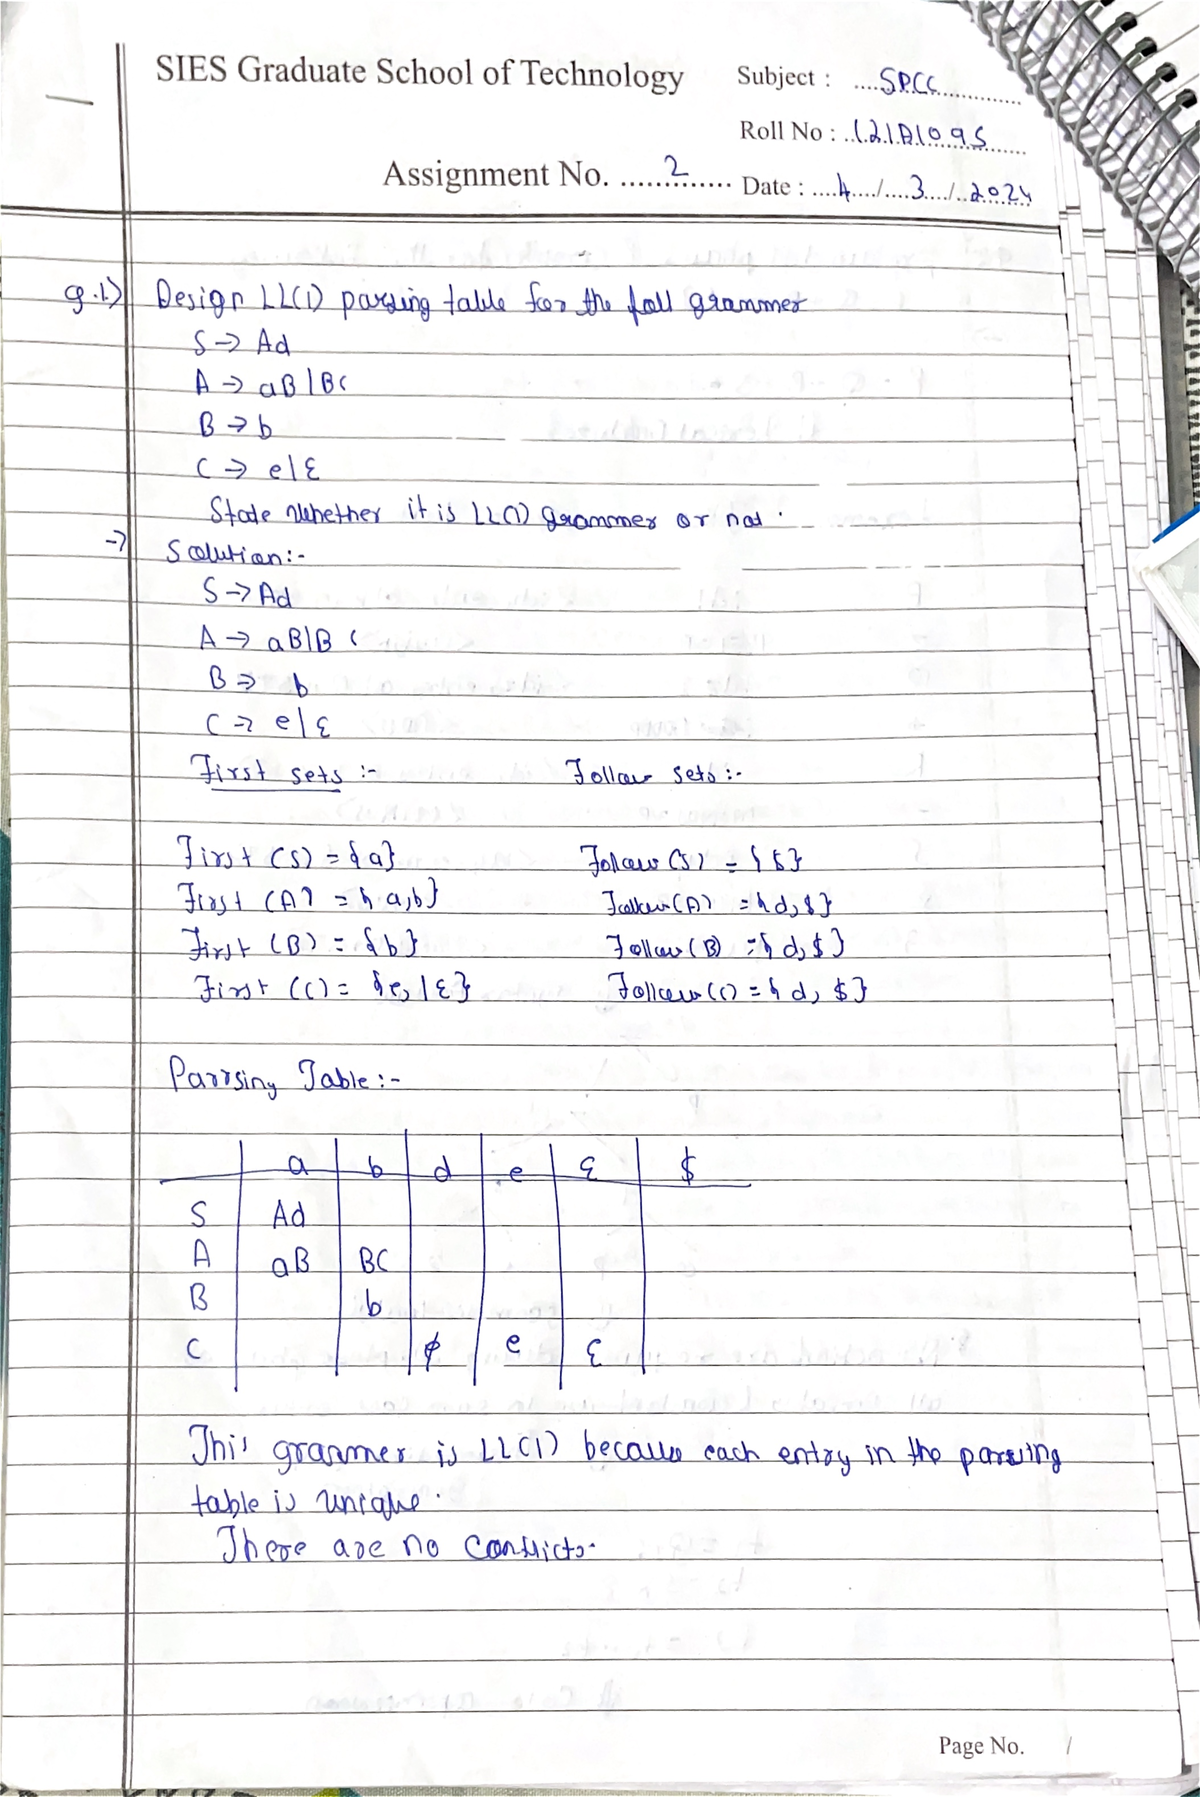 SIES Graduate School of Technology
Subject : SPCC
Roll No : 121A1095
Assignment No. 2
Date : 4/3/2024
Q.1) Design LL(1) parsing table for the foll grammer
S → Ad
A → aB|BC
B → b
C → e|ε
State whether it is LL(1) grammer or not.
→ Solution:-
S → Ad
A → aB|BC
B → b
C → e|ε
First sets :- Follow sets :-
First (S) = {a} Follow (S) = {$}
First (A) = {a,b} Follow (A) = {d,$}
First (B) = {b} Follow (B) = {d,$}
First (C) = {e, |ε} Follow (C) = {d, $}
Parrsing Table :-
a b d e ε $
S Ad
A aB BC
B b
C e ε
This grammer is LL(1) because each entry in the parsing
table is unique.
There are no conflicts.
Page No. 1